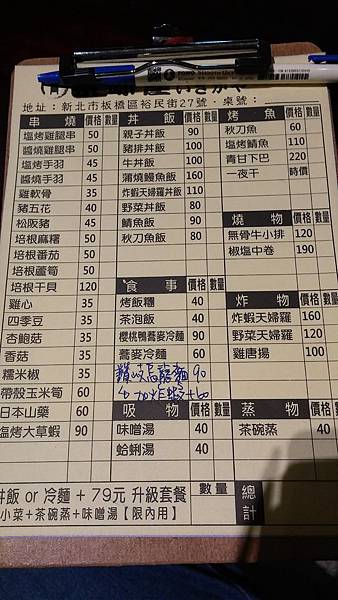 いざかや
地址：新北市板橋區裕民街27號．桌號：
串燒 價格 數量
塩烤雞腿串 50
醬燒雞腿串 50
塩烤手羽 45
醬燒手羽 45
雞軟骨 35
豬五花 40
松阪豬 45
培根麻糬 50
培根番茄 50
培根蘆筍 50
培根干貝 120
雞心 35
四季豆 35
杏鮑菇 35
香菇 35
糯米椒 35
帶殼玉米筍 60
日本山藥 60
塩烤大草蝦 90
丼飯 價格 數量
親子丼飯 90
豬排丼飯 100
牛丼飯 100
蒲燒鰻魚飯 160
炸蝦天婦羅丼飯 110
野菜丼飯 80
鯖魚飯 90
秋刀魚飯 80
食事 價格 數量
烤飯糰 40
茶泡飯 40
櫻桃鴨蕎麥冷麵 90
蕎麥冷麵 60
讚岐烏龍麵 90
加炸蝦+60
吸物 價格 數量
味噌湯 40
蛤蜊湯 40
烤魚 價格 數量
秋刀魚 60
塩烤鯖魚 110
青甘下巴 220
一夜干 時價
燒物 價格 數量
無骨牛小排 120
椒塩中卷 190
炸物 價格 數量
炸蝦天婦羅 160
野菜天婦羅 120
雞唐揚 100
蒸物 價格 數量
茶碗蒸 40
丼飯 or 冷麵 + 79元 升級套餐 數量
小菜+茶碗蒸+味噌湯【限內用】
總計